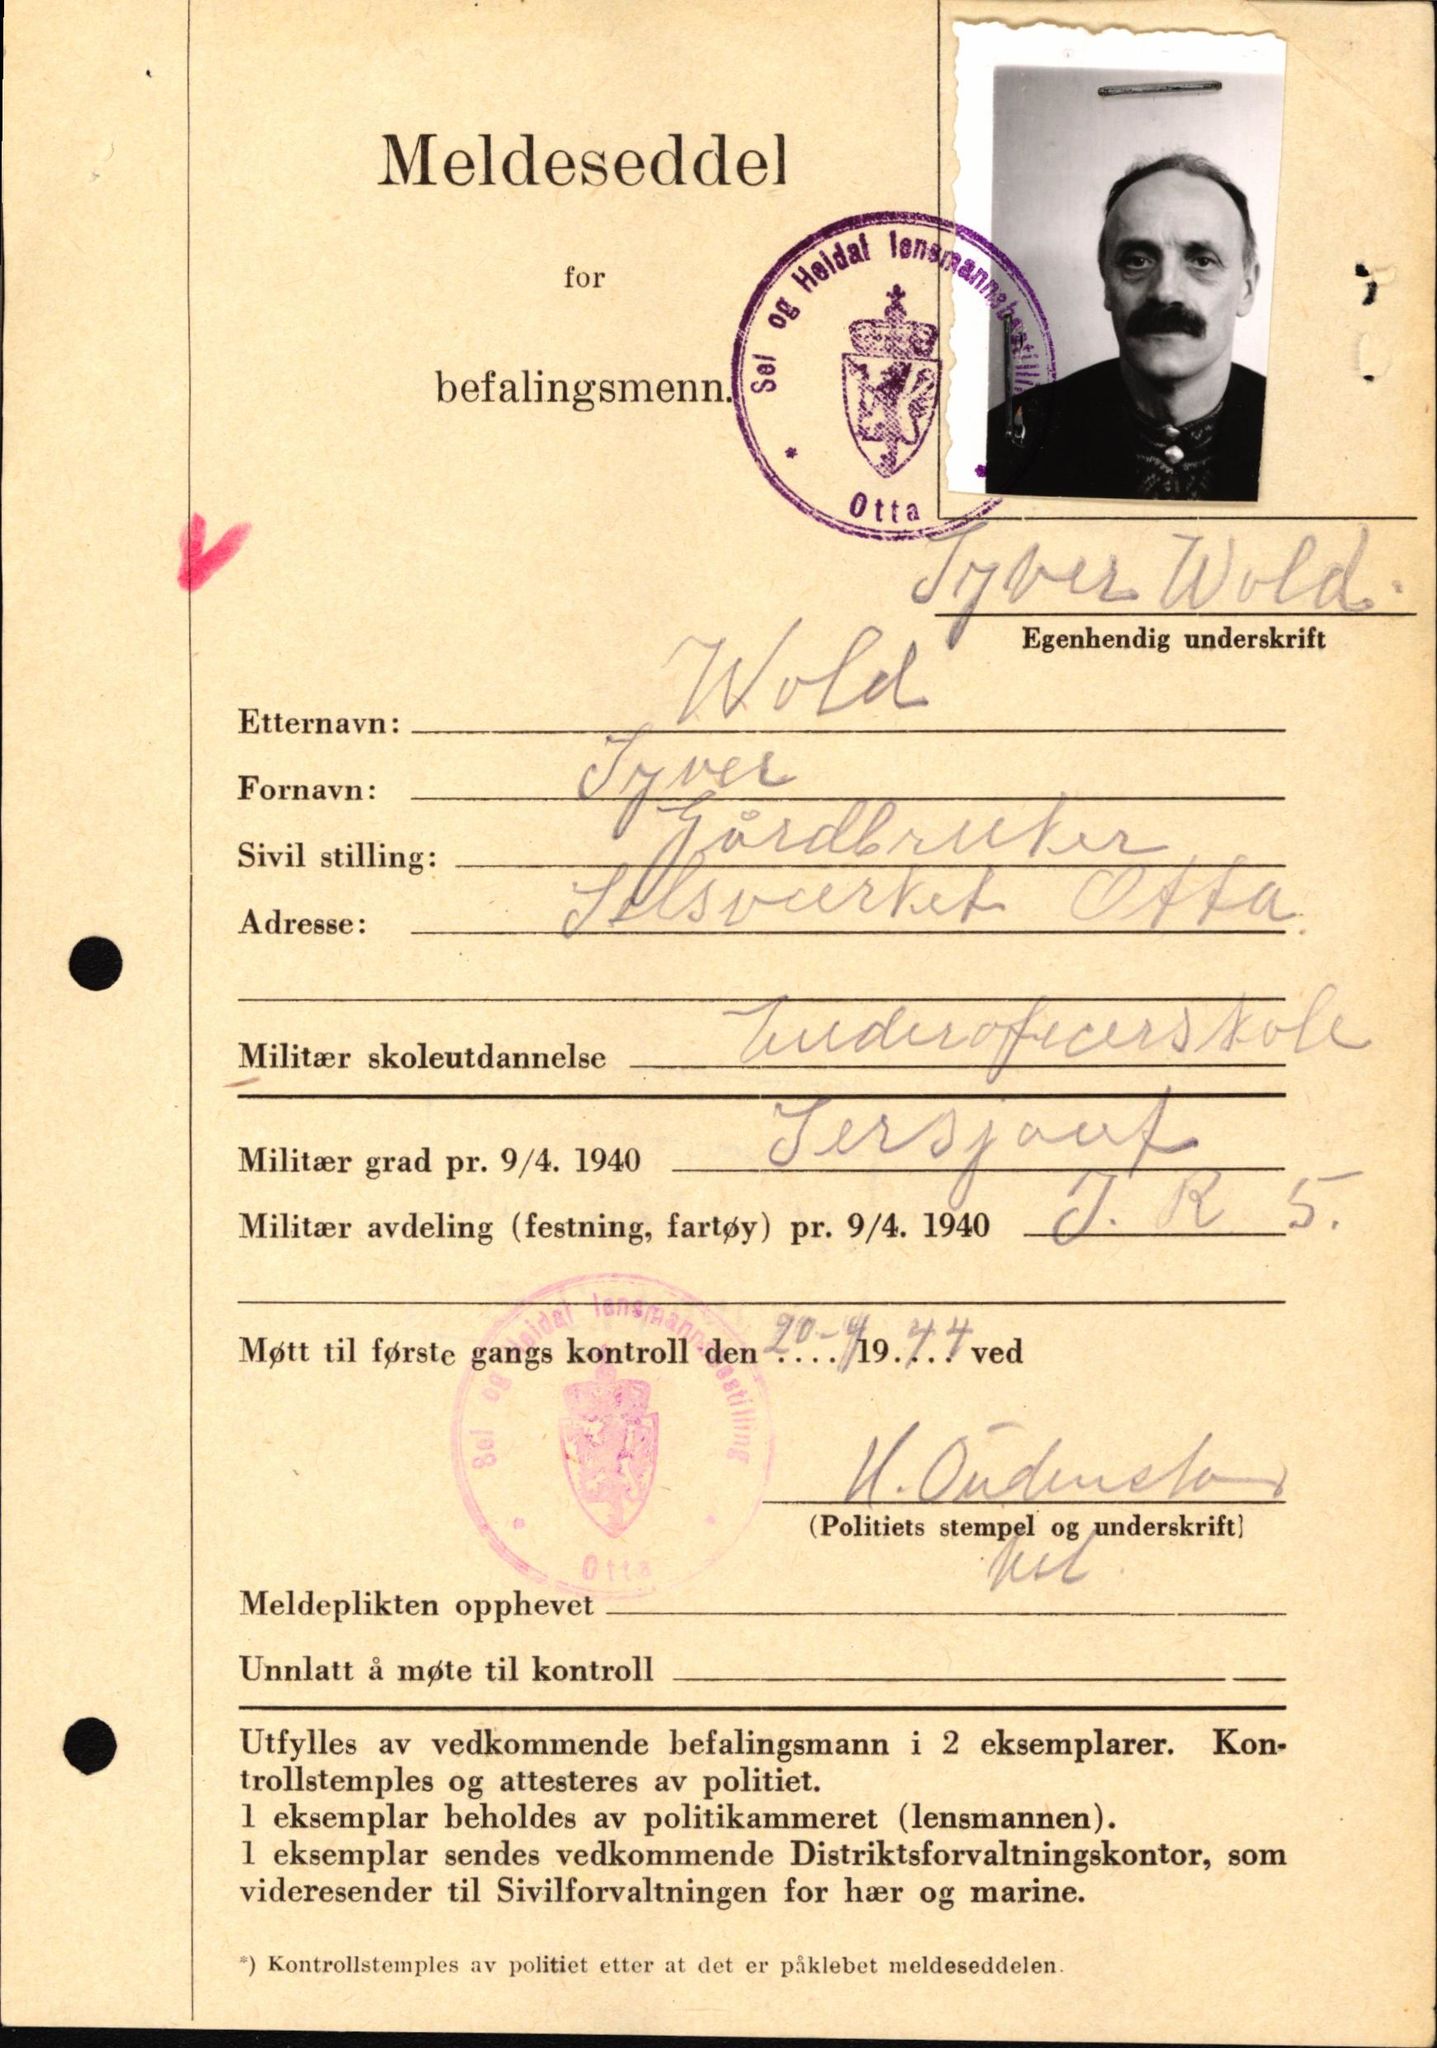 Meldeseddel
for
befalingsmenn.
Sel og Heidal lensmannsbestilling
Otta
Syver Wold.
Egenhendig underskrift
Etternavn: Wold
Fornavn: Syver
Sivil stilling: Gårdbruker
Adresse: Selsverket Otta.
Militær skoleutdannelse Underoficerskole
Militær grad pr. 9/4. 1940 Sersjant
Militær avdeling (festning, fartøy) pr. 9/4. 1940 I. R 5.
Møtt til første gangs kontroll den 20-4 1944 ved
Sel og Heidal lensmannsbestilling
Otta
H.
(Politiets stempel og underskrift)
Meldeplikten opphevet
Unnlatt å møte til kontroll
Utfylles av vedkommende befalingsmann i 2 eksemplarer. Kon-
trollstemples og attesteres av politiet.
1 eksemplar beholdes av politikammeret (lensmannen).
1 eksemplar sendes vedkommende Distriktsforvaltningskontor, som
videresender til Sivilforvaltningen for hær og marine.
*) Kontrollstemples av politiet etter at det er påklebet meldeseddelen.